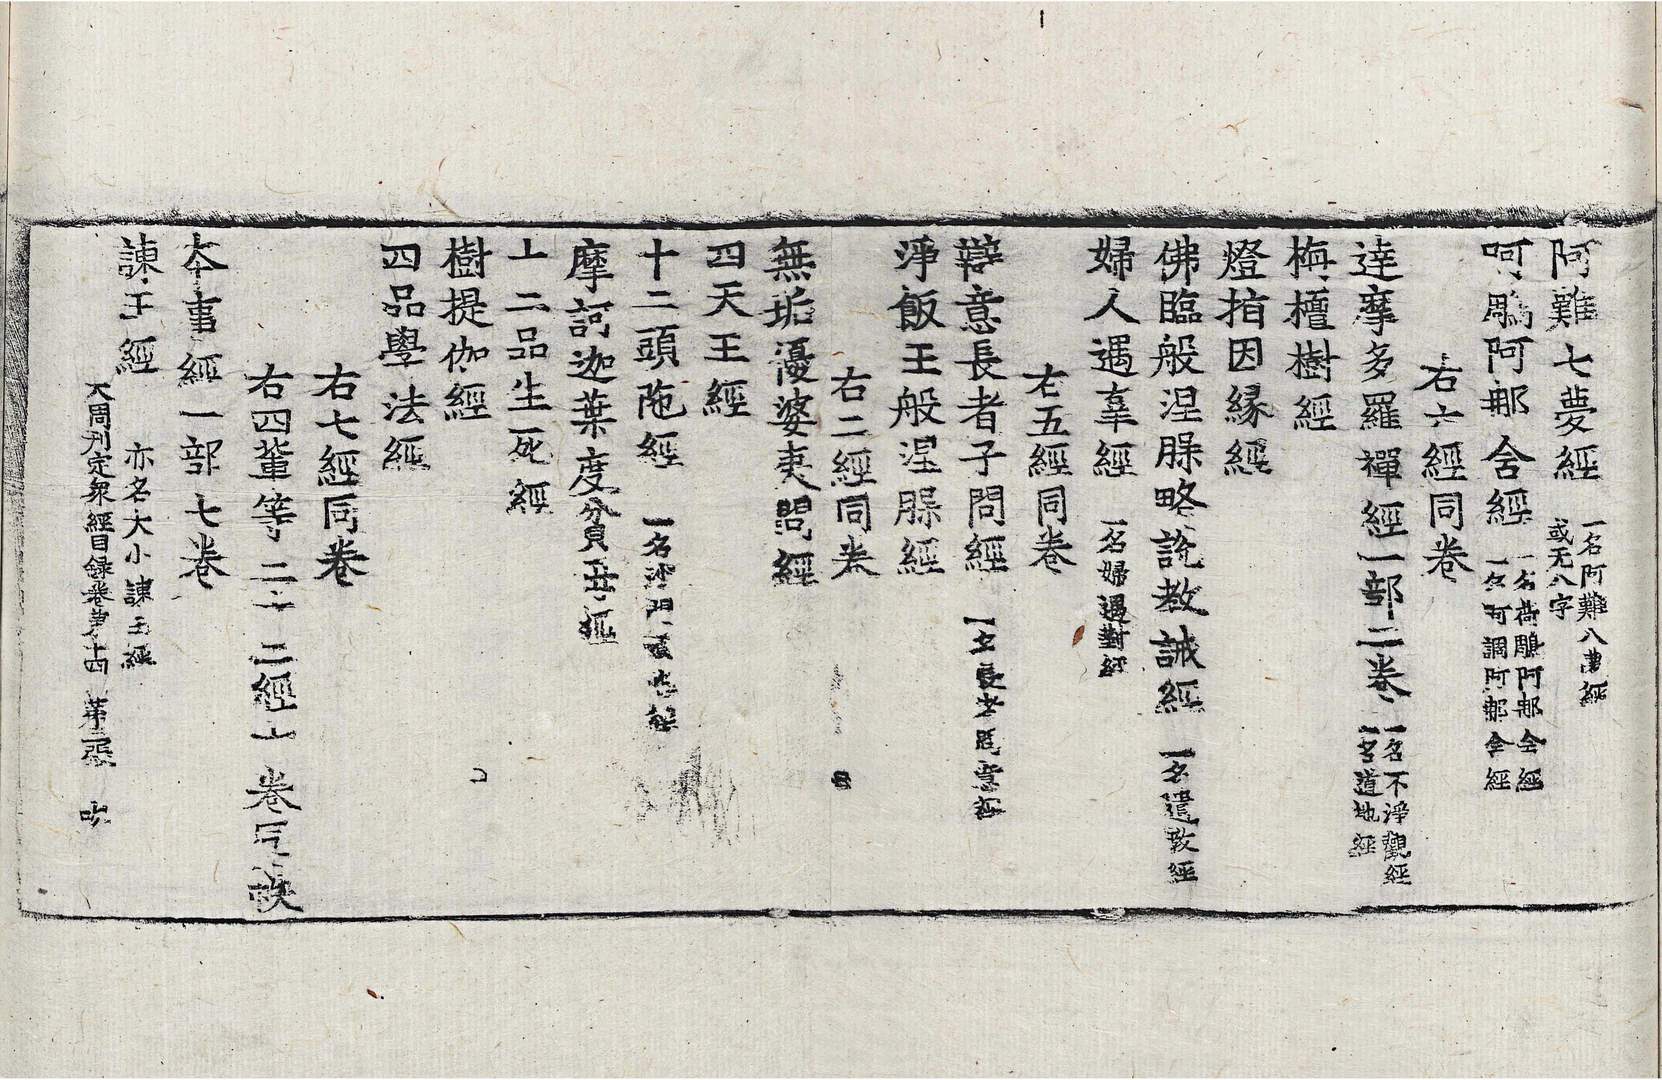 阿難七夢經 一名阿難八夢經
或无八字
呵鵰阿那含經 一名荷鵰阿那含經
一名呵調阿那含經
右六經同卷
達摩多羅禪經一部二卷 一名不淨觀經
一名道地經
栴檀樹經
燈指因緣經
佛臨般涅槃略說教誡經 一名遺教經
婦人遇辜經 一名婦遇對經
右五經同卷
辯意長者子問經
淨飯王般涅槃經
右二經同卷
無垢優婆夷問經
四天王經
十二頭陁經 一名沙門
摩訶迦葉度貧母經
十二品生死經
樹提伽經
四品學法經
右七經同卷
右四輩等二十二經十卷同帙
本事經一部七卷
諫王經 亦名大小諫王經
大周刊定衆經目録卷第十四 第二張